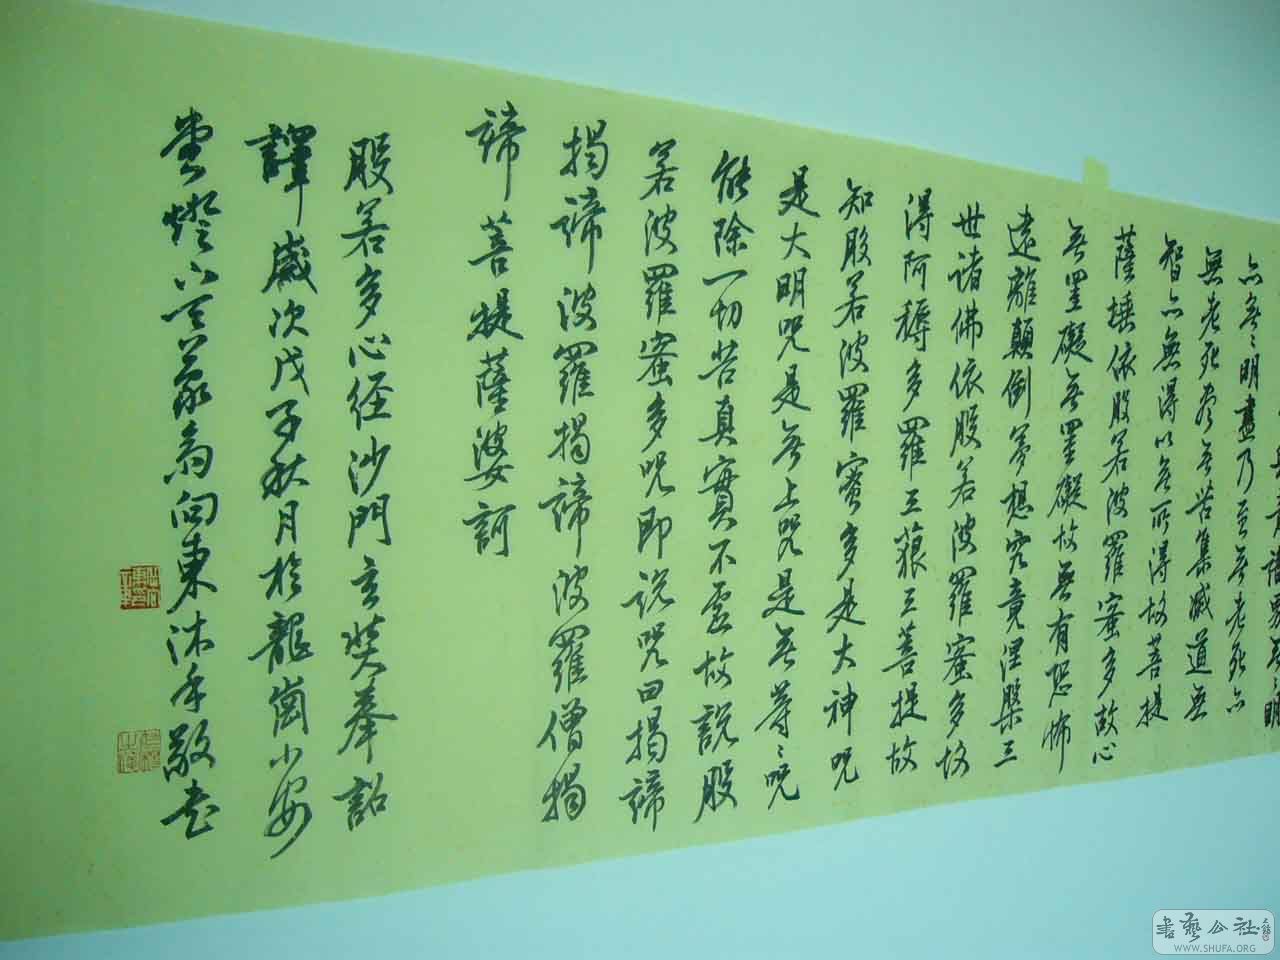 亦無々明盡乃至無老死亦
無老死盡無苦集滅道無
智亦無得以無所得故菩提
薩埵依般若波羅蜜多故心
無罣礙無罣礙故無有恐怖
遠離顛倒夢想究竟涅槃三
世諸佛依般若波羅蜜多故
得阿耨多羅三藐三菩提故
知般若波羅蜜多是大神呪
是大明呪是無上呪是無等々呪
能除一切苦真實不虛故說般
若波羅蜜多呪即說呪曰揭諦
揭諦波羅揭諦波羅僧揭
諦菩提薩婆訶
般若多心經沙門玄奘奉詔
譯歲次戊子秋月於龍崗小安
向東沐手敬書
書藝公社
WWW.SHUFA.ORG